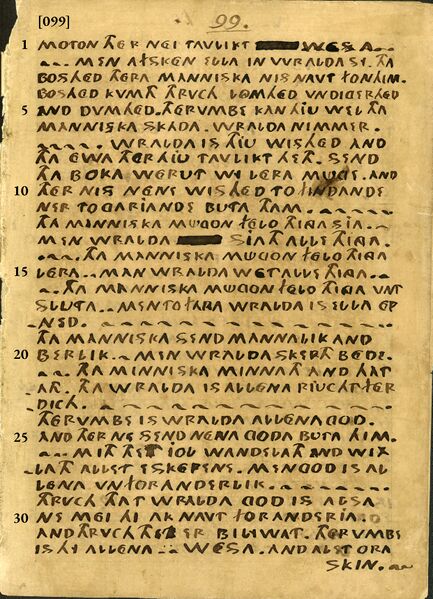 [099]
99.
1 MOTON THER NEI TAVLIKT WESA.
MEN ALSKEN ELLA IN WRALDA ST. THA
BOSHED THERA MANNISKA NIS NAVT FONHIM.
BOSHED KVMTH THRVCH LOMHED VNDIGERHED
5 AND DVMHED. THERVMBE KAN HIU WEL THA
MANNISKA SKADA. WRALDA NIMMER.
WRALDA IS THIU WISHED AND
THA EWA THER HIU TAVLIKT HETH. SEND
THA BOKA WERUT WI LERA MUGE. AND
10 THER NIS NENE WISHED TO FINDANDE
NER TO GARIANDE BUTA THAM.
THA MANNISKA MUGON FELO THINGA SIA.
MEN WRALDA SIATH ALLE THINGA.
THA MANNISKA MUGON FELO THINGA
15 LERA. MAN WRALDA WET ALLE THINGA.
THA MANNISKA MUGON FELO THINGA VNT
SLUTA. MEN TO FARA WRALDA IS ELLA EP
NED.
THA MANNISKA SEND MANNALIK AND
20 BERLIK. MEN WRALDA SKEPTH BEDE.
THA MINNISKA MINNATH AND HAT
ATH. THA WRALDA IS ALLENA RIUCHTFER
DICH.
THERUMBE IS WRALDA ALLENA GOD.
25 AND THER NE SEND NENA GODA BUTA HIM.
MITH THET IOL WANDELATH AND WIX
LATH ALLET ESKEPENE. MEN GOD IS AL
LENA VNFORANDERLIK.
THRUCH THAT WRALDA GOD IS ALSA
30 NE MEI HI AK NAVT FORANDERIA.
AND THRUCH THET ER BILIWAT. THERUMBE
IS HI ALLENA WESA. AND ALET ORA
SKIN.